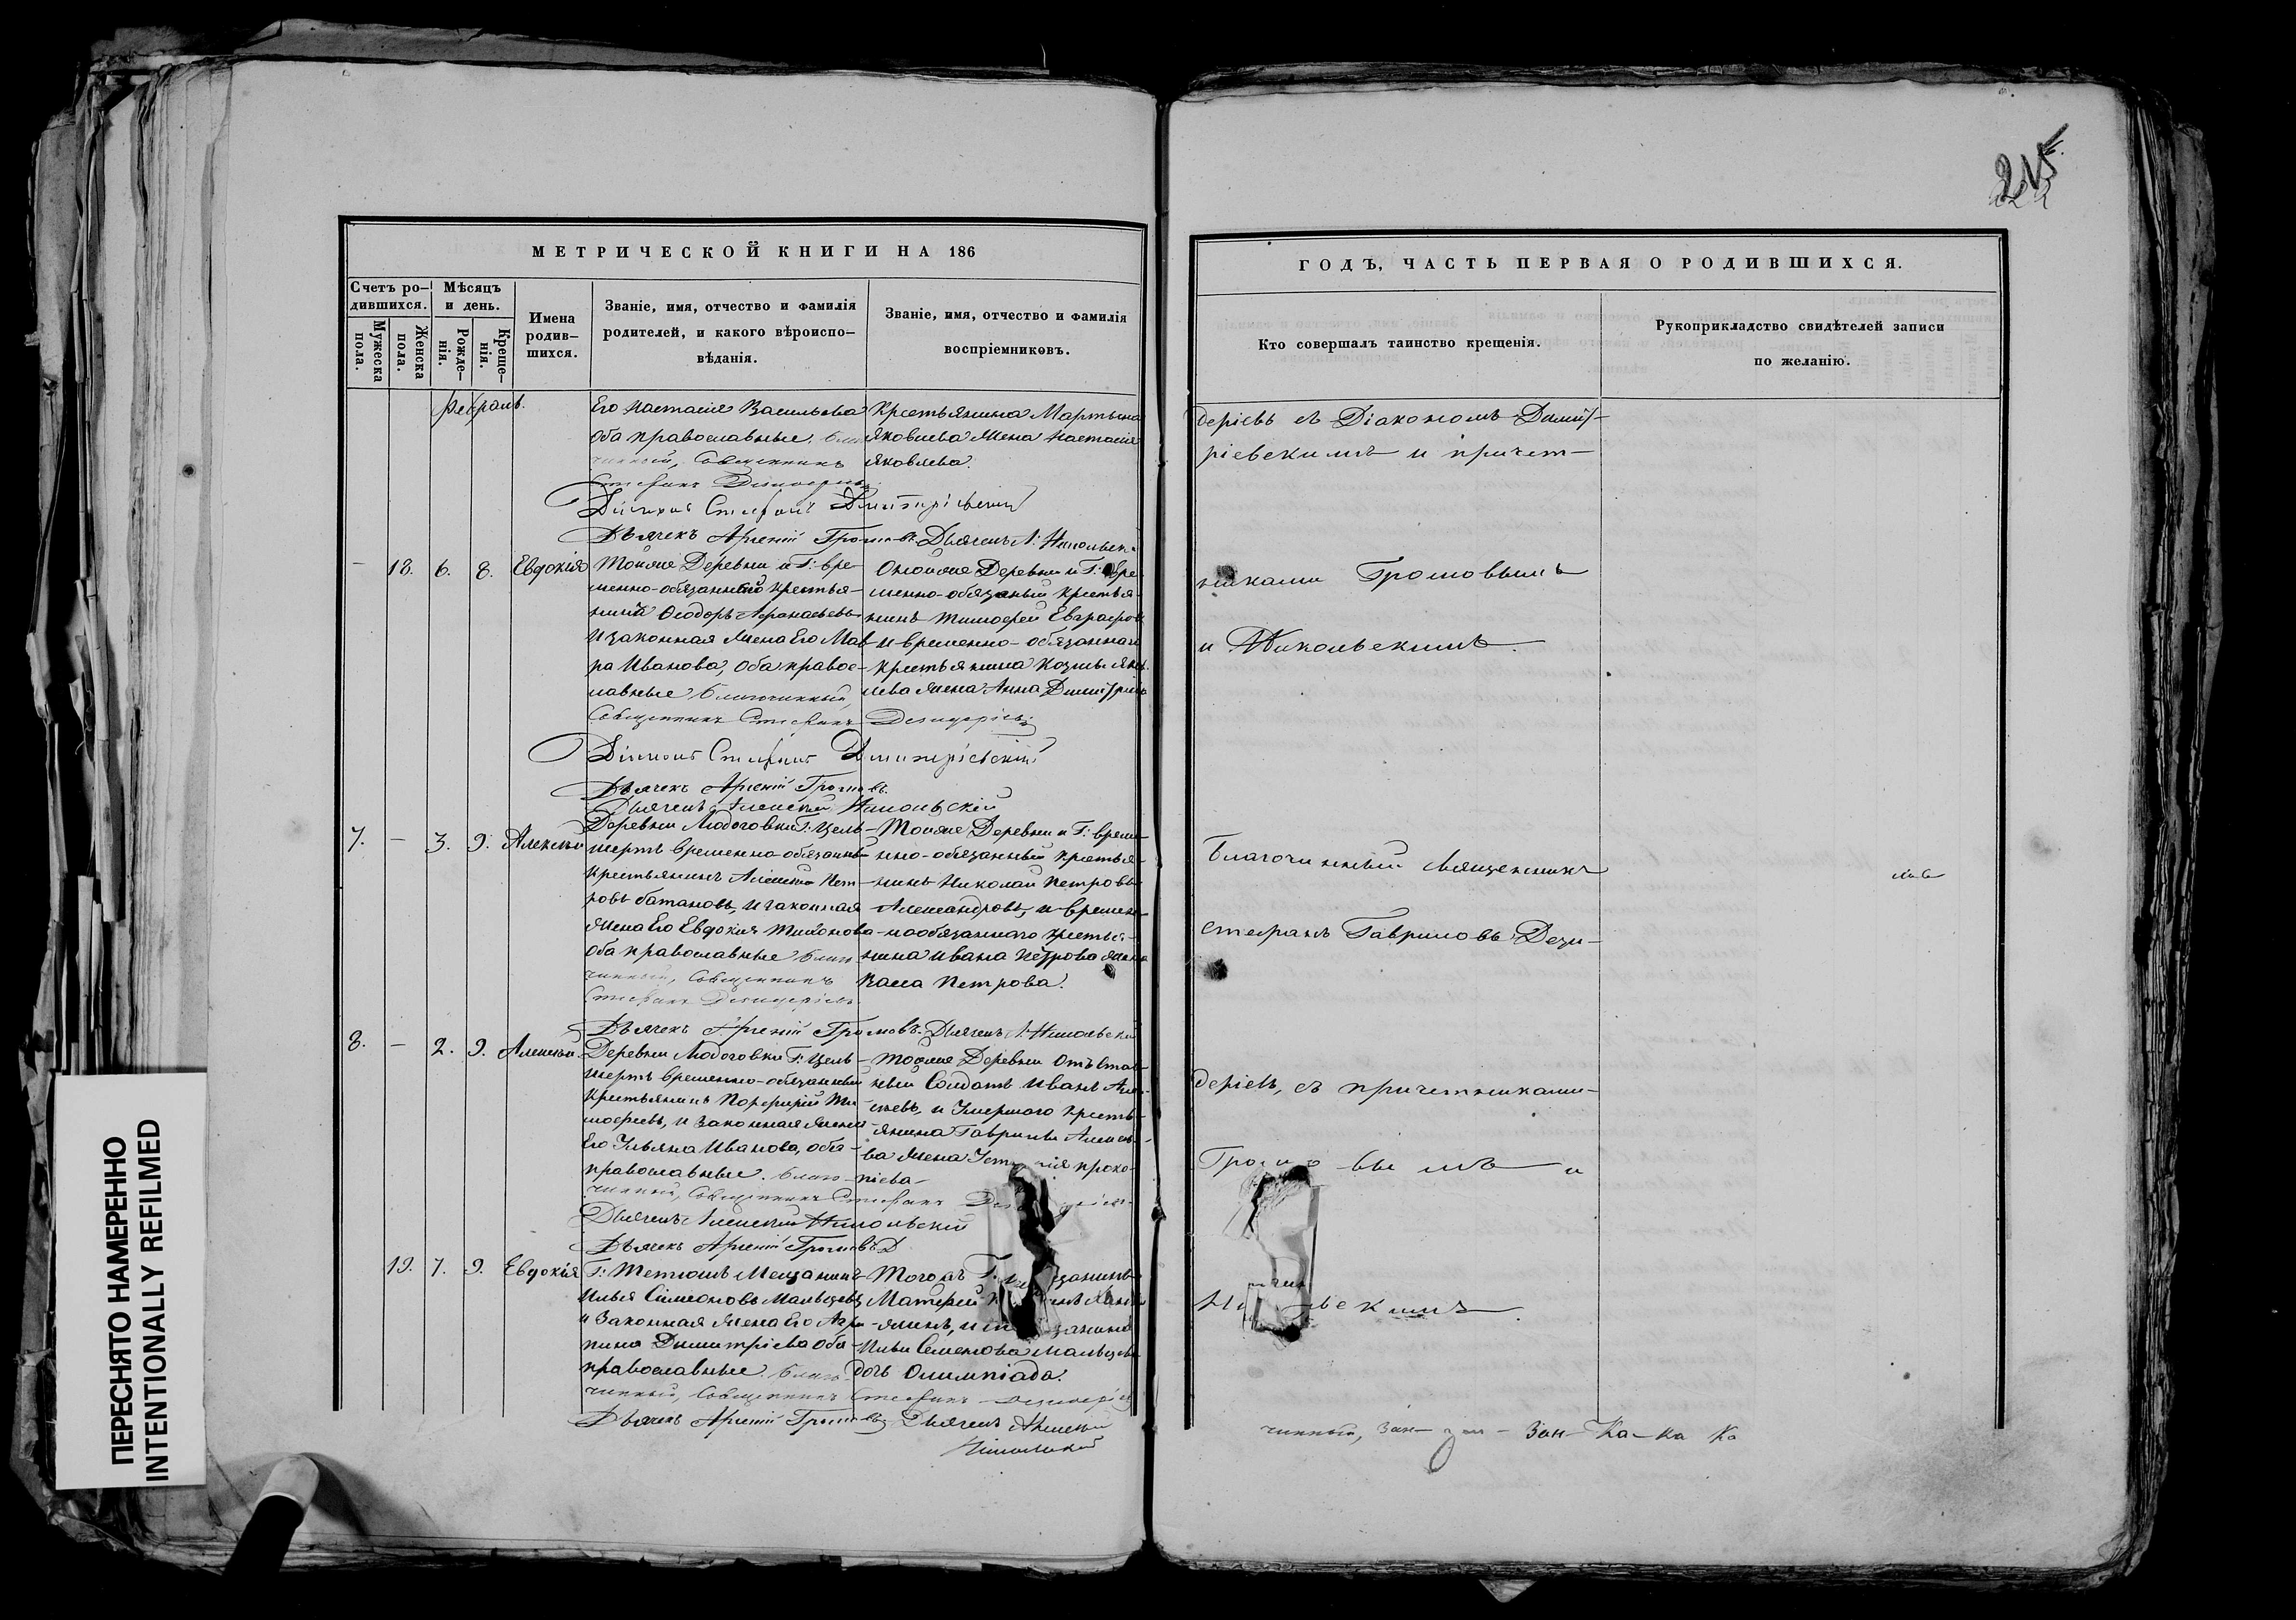 МЕТРИЧЕСКОЙ КНИГИ НА 186
Счетъ ро-
дившихся.
Мужеска
пола.
Женска
пола.
Мѣсяцъ
и день.
Рожде-
нія.
Креще-
нія.
Имена
родив-
шихся.
Званіе, имя, отчество и фамилія
родителей, и какого вѣроиспо-
вѣданія.
Званіе, имя, отчество и фамилія
воспріемниковъ.
Его Настасія Васильева
оба православные. Благо
чинный, Священникъ
Стефанъ Дезидеріевъ
Крестьянина Мартына
Яковлева Жена Настасія
Яковлева.
Діаконъ Стефанъ Дмитріевскій
Дьячекъ Арсеній Громовъ. Дьячекъ А. Никольск
— 18. 6. 8. Евдокія
Тойже Деревни и Г: вре-
менно-обязанный Крестья-
нинъ Ѳеодоръ Аѳанасьевъ
И законная Жена Его Мав
ра Иванова, Оба право-
славные Благочинный,
Священникъ Стефанъ Дезидеріевъ
Оной же Деревни и Г: вре
менно-обязаный Крестья-
нинъ Тимофей Евграфов
и временно-обязаннаго
Крестьянина Козмы Яков
лева Жена Анна Димитріева
Діаконъ Стефанъ Дмитріевскій
Дьячекъ Арсеній Громовъ.
Дьячекъ Алексей Никольскій
7. — 3. 9. Алексѣй
Деревни Г:
временно-обязанный
Крестьянинъ Алексей Пет-
ровъ Батановъ, И законная
Жена Его Евдокия Тихонова
Оба православные Благо
чинный, Священникъ
Стефанъ Дезидеріевъ.
Тойже Деревни и Г: време-
нно-обязанный Крестья-
нинъ Николай Петровъ
Александровъ, и времен-
нообязаннаго Кресть-
нина Ивана Петрова Жена
Васса Петрова.
Дьячекъ Арсеній Громовъ. Дьячекъ А. Никольскій
8. — 2. 9. Алексѣй.
Деревни Г:
временно-обязанный
Крестьянинъ Порфирій Ти-
мофеевъ, И Законная Жена
Его Ульяна Иванова, оба
православные. Благо
чинный, Священникъ Стефанъ
Тойже Деревни Отъстав-
ный Солдатъ Иванъ Алек-
сѣевъ, и Умершаго Кресть-
янина Гаврилы Алексѣе-
ва Жена проко-
пiева-
Дьячекъ Алексей Никольскій
Дьячекъ Арсеній Громовъ
19. 7. 9. Евдокія
Г: Тетюшъ Мещанинъ
Илья Симеоновъ Мальцевъ
И Законная Жена Его Агри-
пина Димитріева Оба
православные. Благо
чинный, Священникъ Стефанъ Дезидеріевъ
Тогожъ Г.
Матфей
Ильи Семенова Мальцева
дочь Олимпіада.
Дьячекъ Арсеній Громовъ Дьячекъ Алексей
Никольскій
ГОДЪ, ЧАСТЬ ПЕРВАЯ О РОДИВШИХСЯ.
Кто совершалъ таинство крещенія.
Рукоприкладство свидѣтелей записи
по желанію.
деріевъ съ Діакономъ Димит-
ріевскимъ и причет-
никами Громовымъ
и Никольскимъ.
Благочинный Священникъ
Стефанъ Гавриловъ Дези-
деріевъ, съ причетниками-
Громовымъ и
чинный, Зан- Зан- Ка-ка Ка
ПЕРЕСНЯТО НАМЕРЕННО
INTENTIONALLY REFILMED